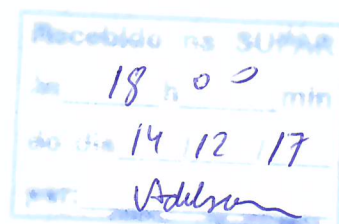 Recebido na SUPAR
às 18 h 00 min
do dia 14/12/17
por: Adelson